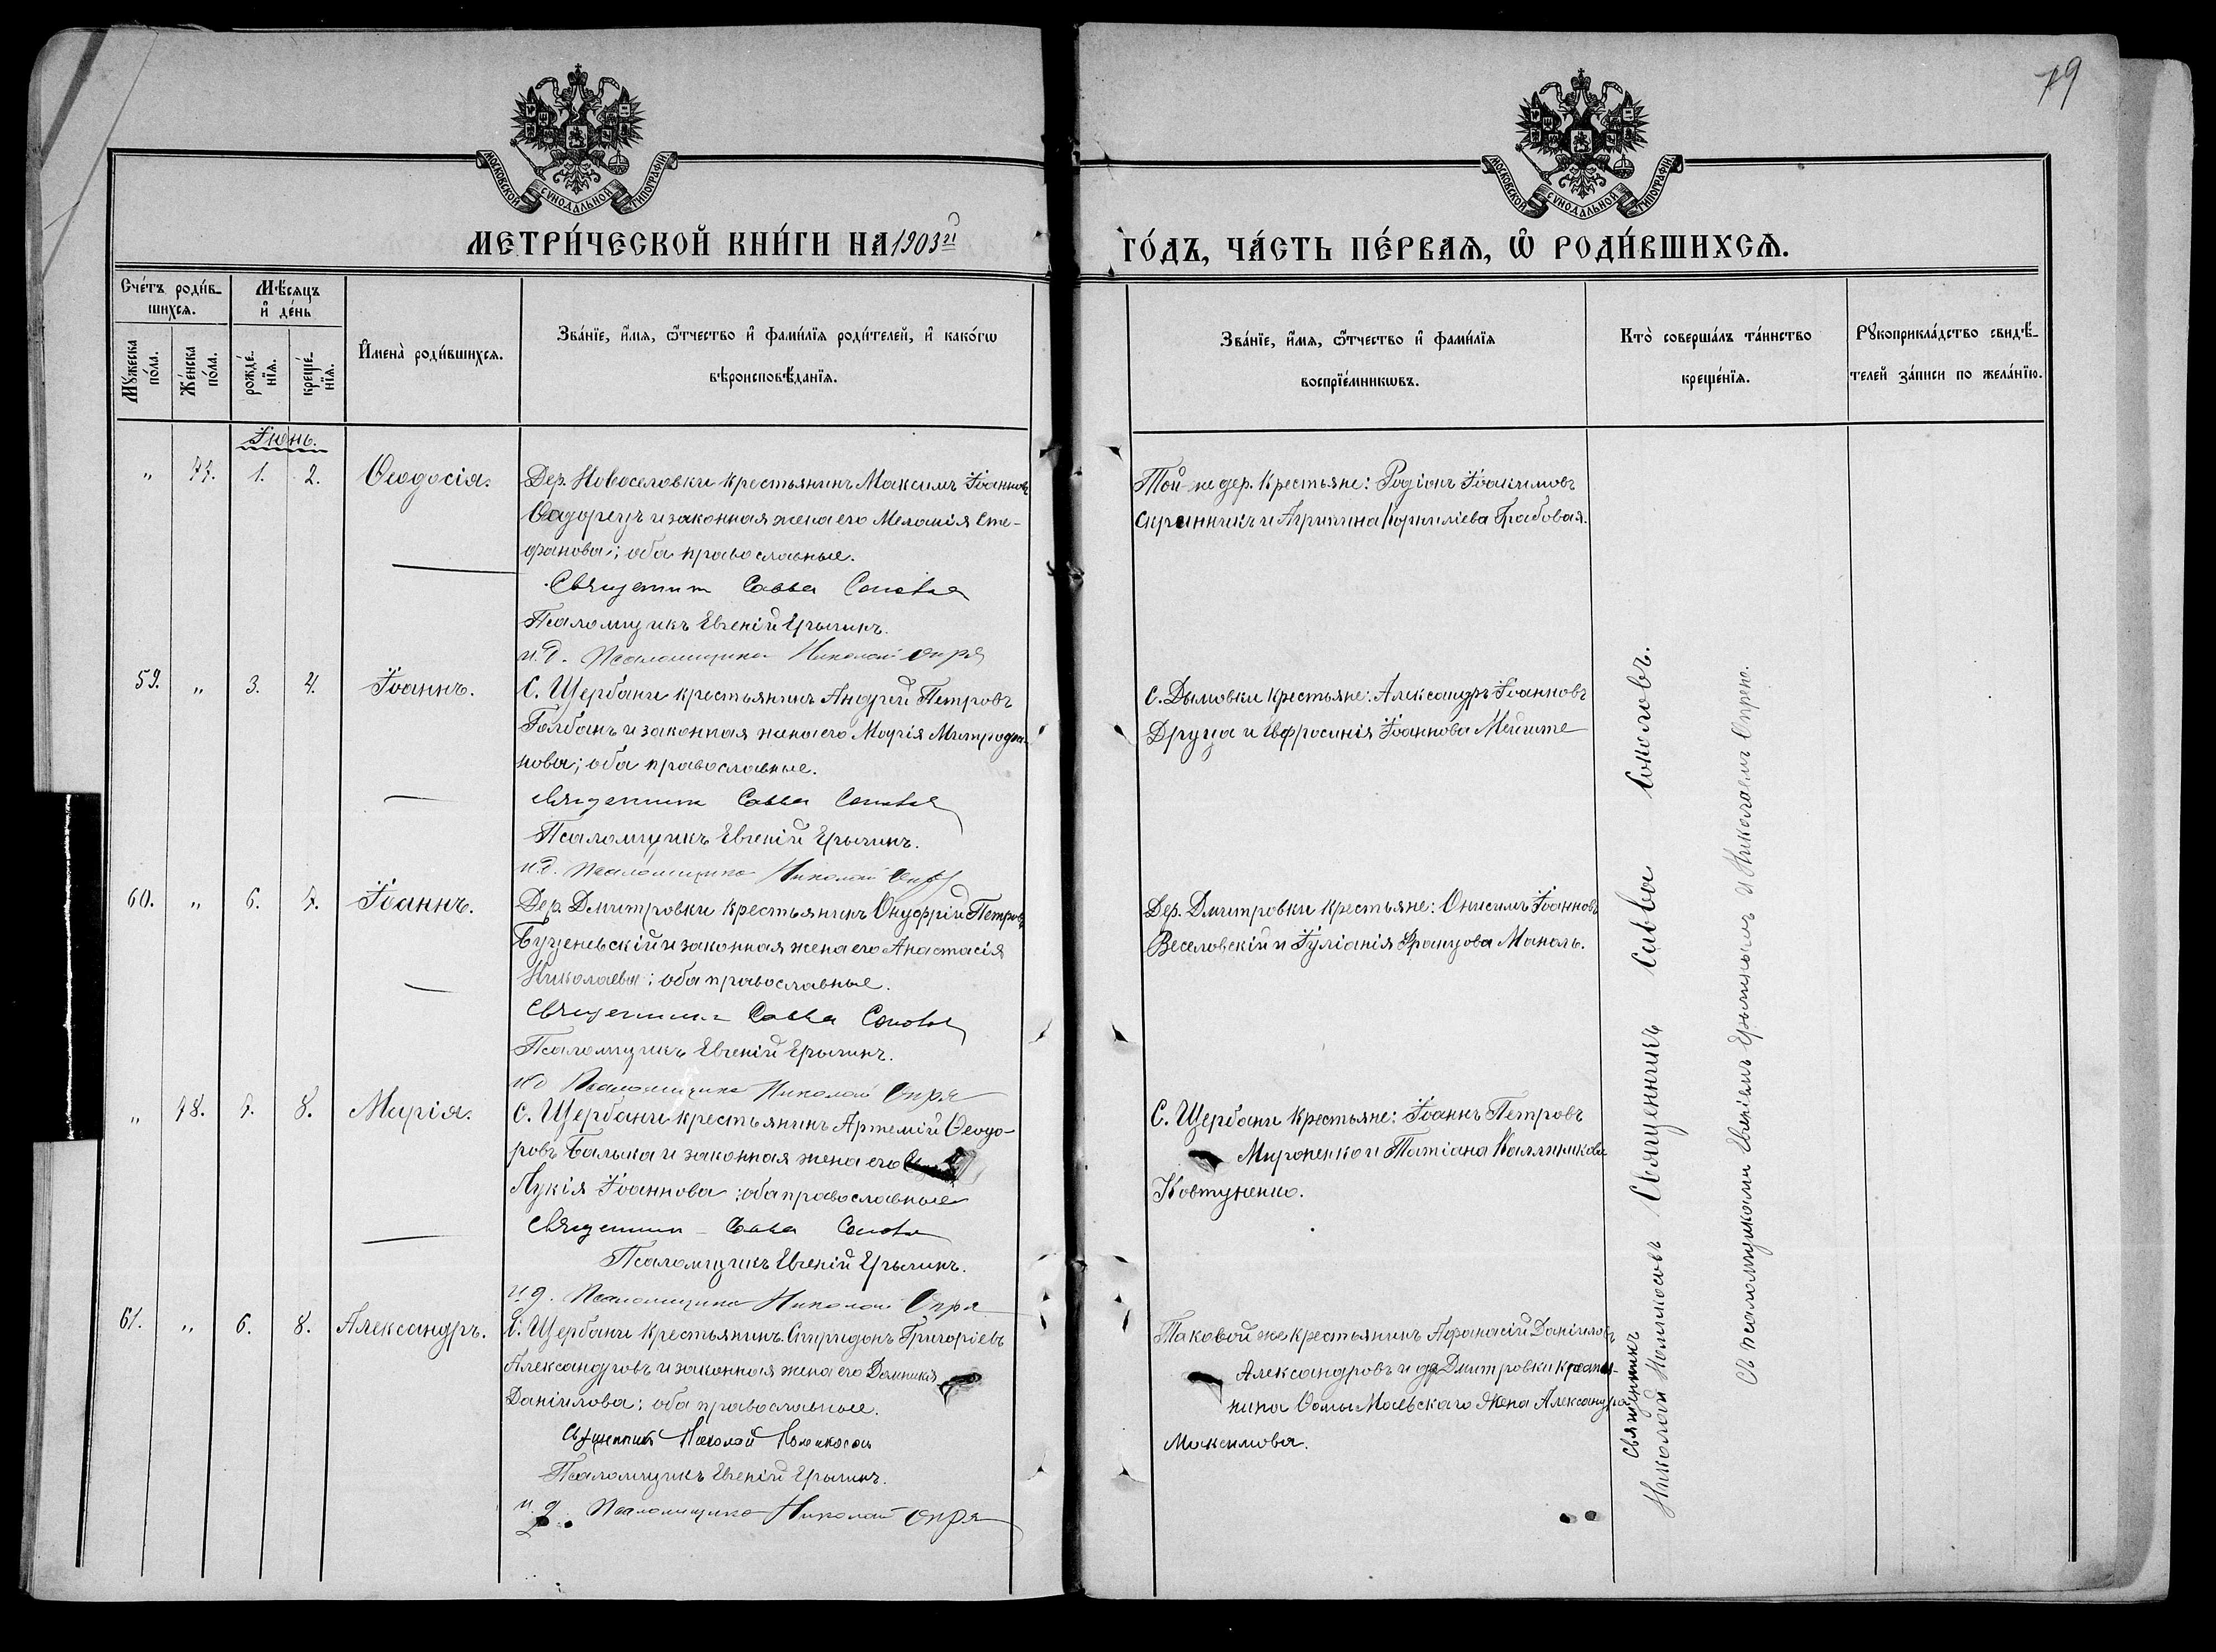 79
МОСКОВСКОЙ СѴНОДАЛЬНОЙ ТИПОГРАФІИ
МОСКОВСКОЙ СѴНОДАЛЬНОЙ ТИПОГРАФІИ
МЕТРИ́ЧЕСКОЙ КНИ́ГИ НА 1903й
ГО́ДЪ, ЧА́СТЬ ПЕ́РВАѦ, Ѡ РОДИ́ВШИХСѦ.
Сче́тъ роди́в-
шихсѧ.
Мꙋжеска
по́ла.
Же́нска
по́ла.
Мѣ́сѧцъ
и҆ де́нь
рожде́-
нїѧ.
креще́-
нїѧ.
И҆мена̀ роди́вшихсѧ.
Зва́нїе, и҆́мѧ, ѻ҆́тчество и҆ фами́лїѧ роди́телей, и҆ како́гѡ
вѣроисповѣ́данїѧ.
Зва́нїе, и҆́мѧ, ѻ҆́тчество и҆ фами́лїѧ
воспрїе́мникѡвъ.
Кто̀ соверша́лъ та́инство
креще́нїѧ.
Рꙋкоприкла́дство свидѣ́-
телей за́писи по жела́нїю.
Іюнь.
„ 77. 1. 2. Ѳеодосія.
Дер. Новоселовки крестьянинъ Максимъ Іоанновъ
и законная жена его Меланія Сте-
фанова; оба православные.
Священник Савва Соколов
Псаломщикъ Евгеній Ерычинъ.
и.д. Псаломщика Николай Опря
Той же дер. крестьяне: Родіонъ Іоакимовъ
Скрынникъ и Агрипина Корниліева Грабовая.
59. „ 3. 4. Іоаннъ.
С. Щербани крестьянинъ Андрей Петровъ
Галбанъ и законная жена его Марія Митрофа-
нова; оба православные.
Священник Савва Соколов
Псаломщикъ Евгеній Ерычинъ.
и.д. Псаломщика Николай Опря
С. Дымовки крестьяне: Александръ Іоанновъ
Друца и Евфросинія Іоаннова
60. „ 6. 7. Іоаннъ.
Дер. Дмитровки крестьянинъ Онуфрій Петровъ
Буценевскій и законная жена его Анастасія
Николаева; оба православные.
Священник Савва Соколов
Псаломщикъ Евгеній Ерычинъ.
ид Псаломщика Николай Опря
Дер. Дмитровки крестьяне: Онисимъ Іоанновъ
Веселовскій и Іуліанія Францова Маналь.
„ 78. 7. 8. Марія.
С. Щербани крестьянинъ Артемій Ѳеодо-
ровъ Балыка и законная жена его
Лукія Іоаннова; оба православные
Священник Савва Соколов
Псаломщикъ Евгеній Ерычинъ.
и д. Псаломщика Николай Опря
С. Щербани крестьяне: Іоаннъ Петровъ
Мироненко и Татіана Каллиникова
Ковтуненко.
61. „ 6. 8. Александръ.
С. Щербани крестьянинъ Спиридонъ Григоріевъ
Александровъ и законная жена его Домникія
Даніилова; оба православные.
Священник Николай Поликосов
Псаломщикъ Евгеній Ерычинъ.
и д. Псаломщика Николай Опря
Таковой же крестьянинъ Афанасій Даніиловъ
Александровъ и др Дмитровки крестья-
нина Ѳомы Маевскаго жена Александра
Максимова.
Священникъ Савва Соколовъ.
Священникъ
Николай
Съ псаломщиками Евгеніемъ Ерычинымъ и Николаемъ Опрею.